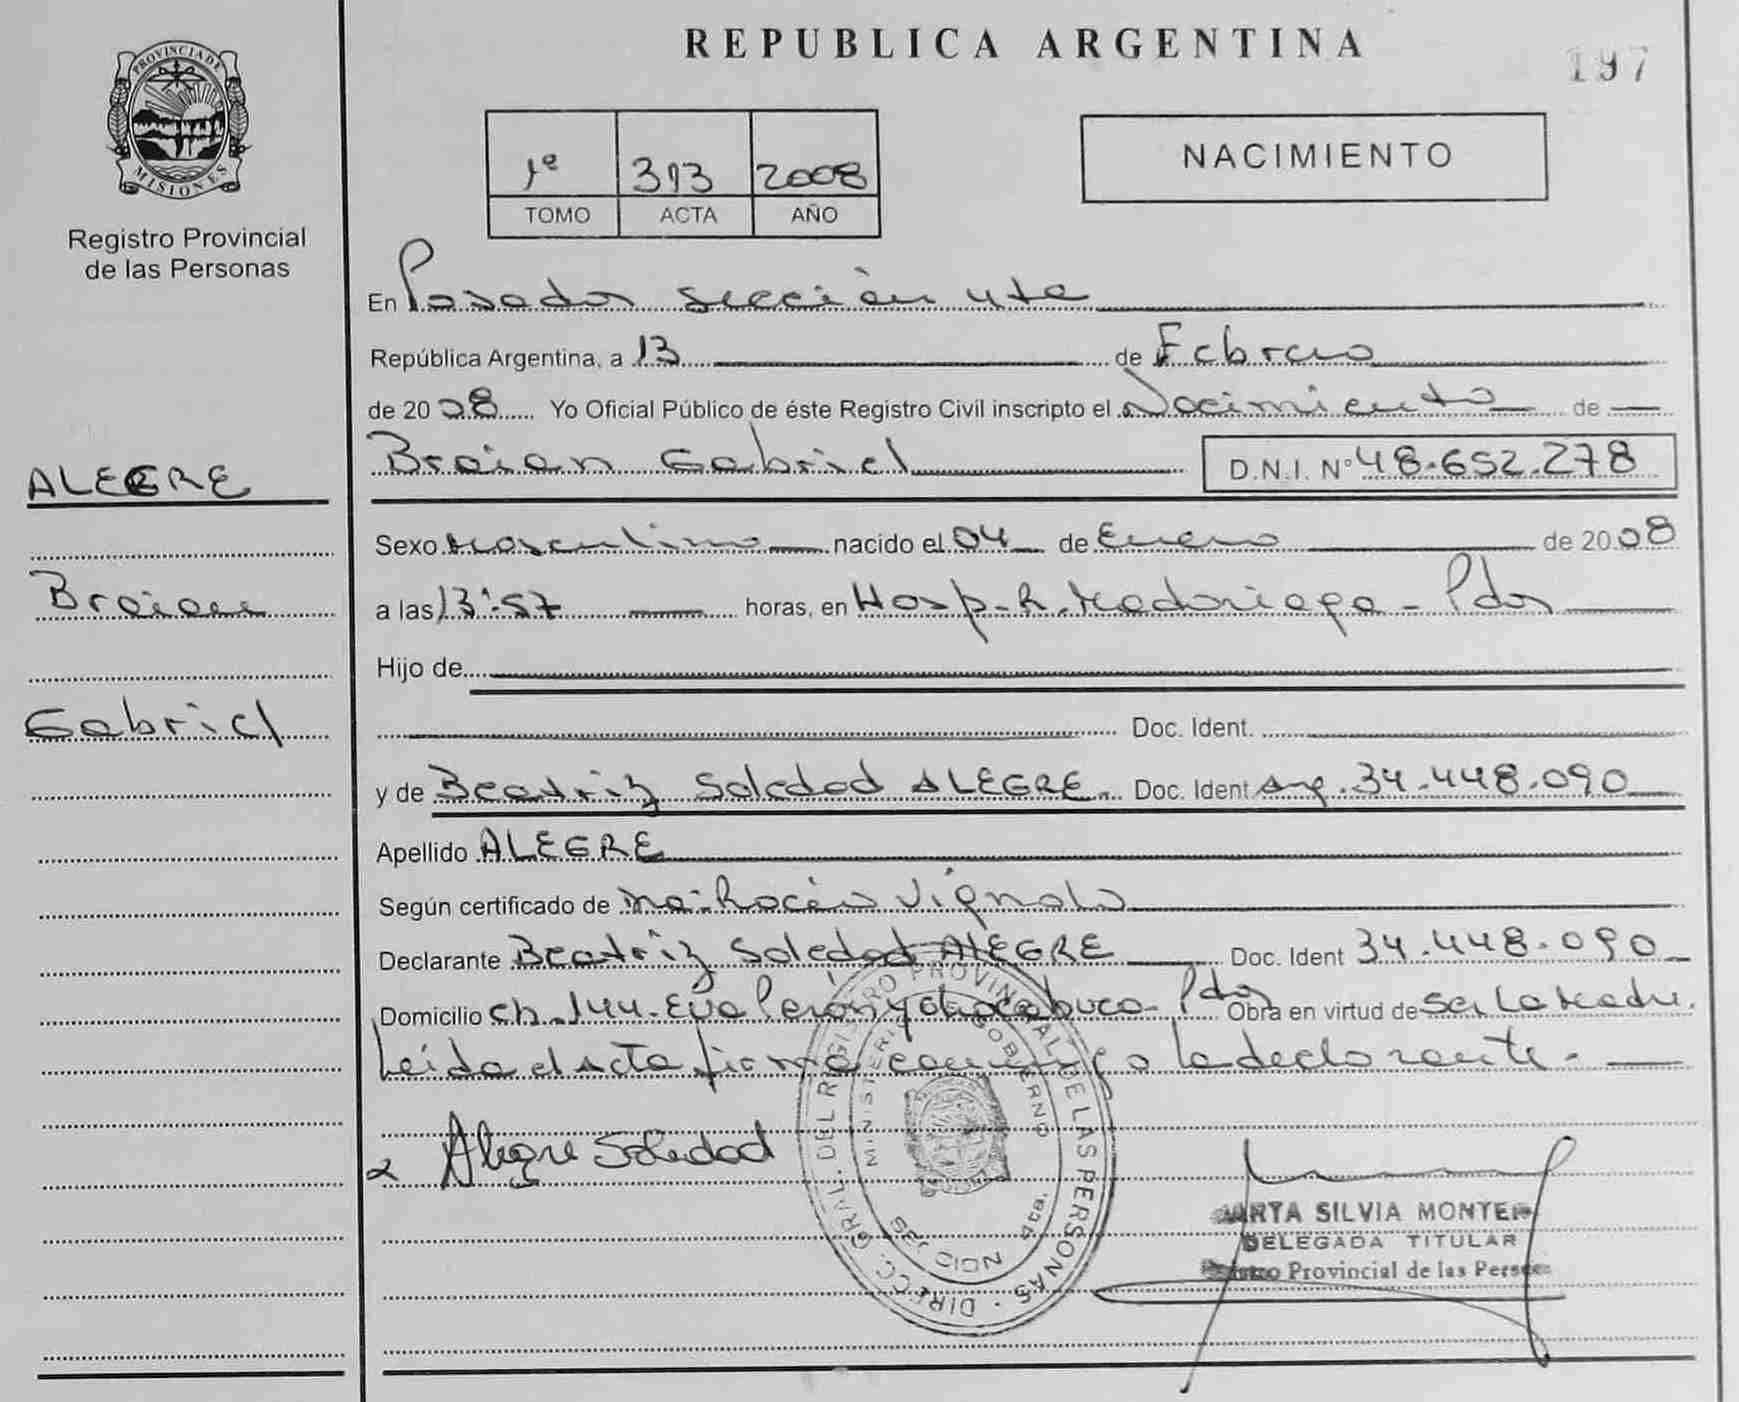 PROVINCIA DE
MISIONES
Registro Provincial
de las Personas
ALEGRE
Braian
Gabriel
REPUBLICA ARGENTINA
197
1º 313 2008
TOMO ACTA AÑO
NACIMIENTO
En Posadas sección 4ta
República Argentina, a 13 de Febrero
de 2008 Yo Oficial Público de éste Registro Civil inscripto el Nacimiento de
Braian Gabriel D.N.I. Nº 48.652.278
Sexo Masculino nacido el 04 de Enero de 2008
a las 13:57 horas, en Hosp. R. Madariaga - Pdas
Hijo de
Doc. Ident.
y de Beatriz Soledad ALEGRE Doc. Ident Arg. 34.448.090
Apellido ALEGRE
Según certificado de Ma. Rocío Vignolo
Declarante Beatriz Soledad ALEGRE Doc. Ident 34.448.090
Domicilio Ch. 144 - Eva Perón y Chacabuco - Pdas Obra en virtud de Ser La Madre.
Leída el Acta firma conmigo la declarante.
Alegre Soledad
DIRECC. GRAL. DEL REGISTRO PROVINCIAL DE LAS PERSONAS
MINISTERIO GOBIERNO
4ta.
SILVIA
DELEGADA TITULAR
Provincial de las